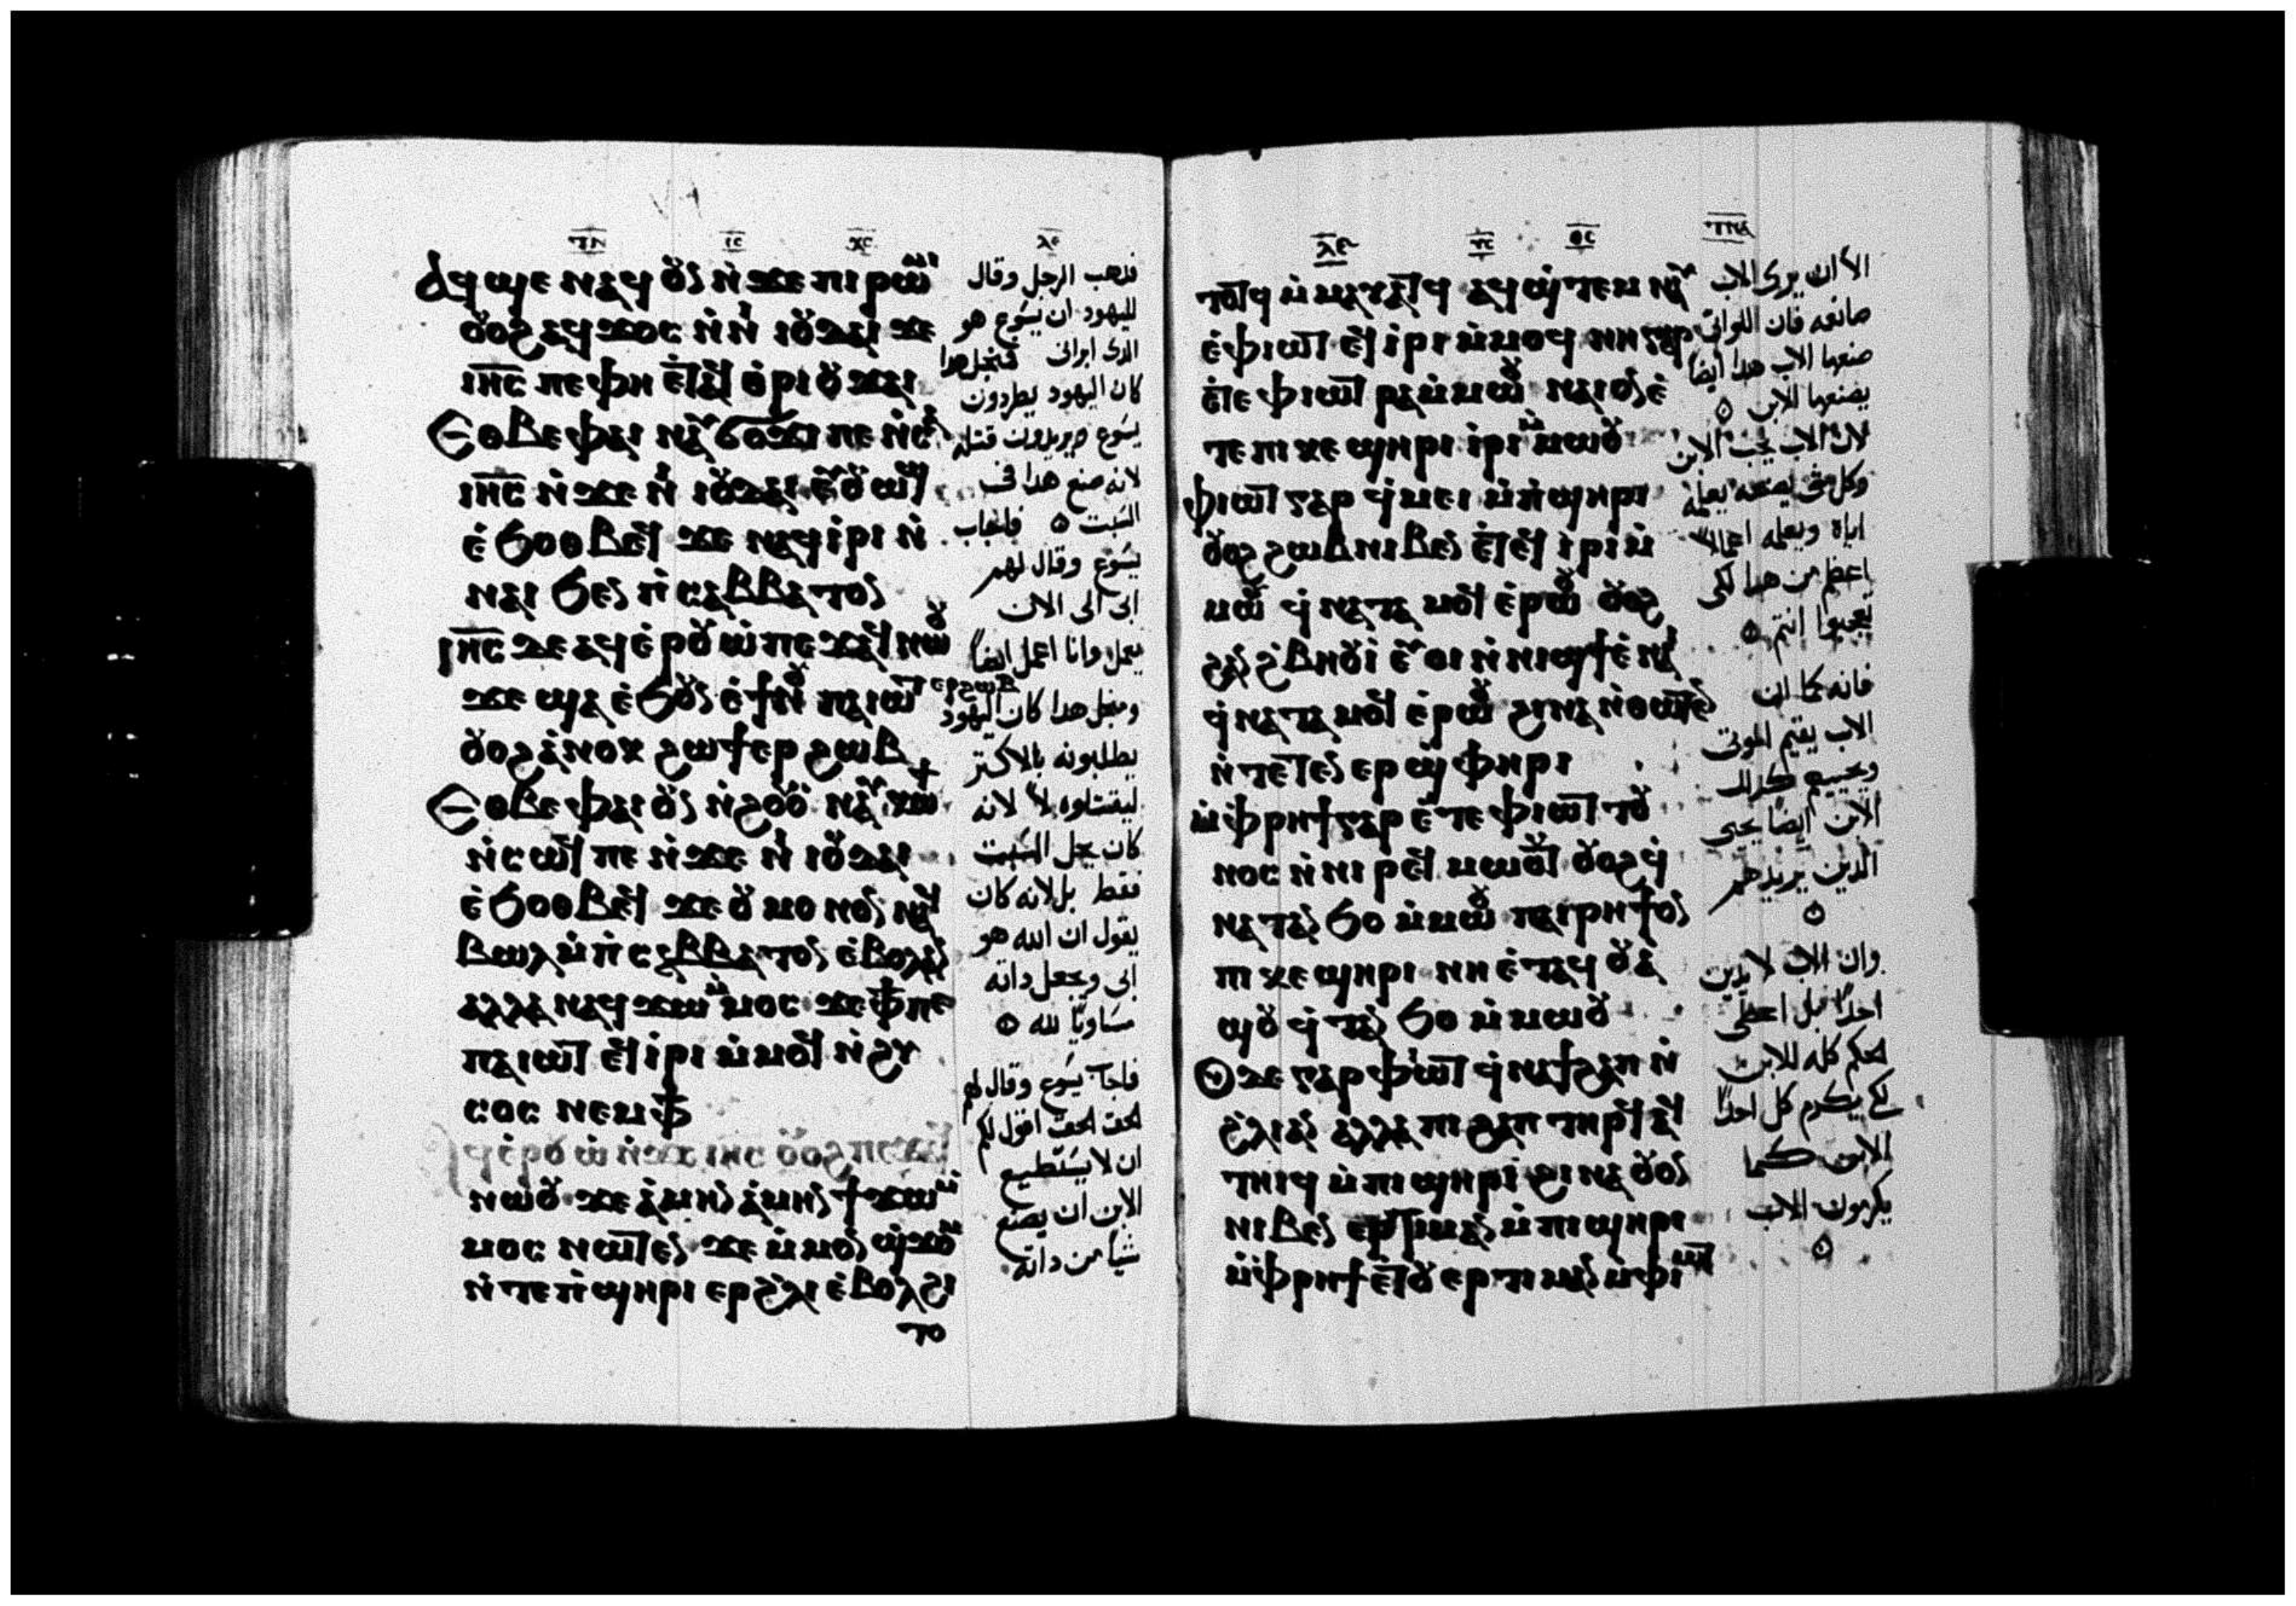 ⲧⲛ ⲓⲥ ⲭⲥ ⲗⲉ
ⲁϥϣⲉ ⲛⲁϥ ⲟⲩⲛ ⲛ̇ϫⲉ ⲡⲓⲣⲱⲙⲓ
ⲟⲩⲟϩ ⲁϥϫⲟⲥ ⲛ̇ⲛⲓ ⲓⲟⲩⲇⲁⲓ ϫⲉ
ⲓⲏ̅ⲥ̅ ⲡⲉ ⲫⲏ ⲉⲧⲁϥ ⲑⲣⲓⲟⲩϫⲁⲓ
Ⲉⲑⲃⲉ ⲫⲁⲓ ⲛⲁⲩϭⲟϫⲓ ⲡⲉ ⲛ̇ⲥⲁ
ⲓⲏ̅ⲥ̅ ⲛ̇ϫⲉ ⲛⲓ ⲓⲟⲩⲇⲁⲓ ⲉⲩⲟⲩⲱϣ
ⲉ̇ϧⲟⲑⲃⲉϥ ϫⲉ ⲛⲁϥⲓ̇ⲣⲓ ⲛ̇
ⲛⲁⲓ ϧⲉⲛ ⲡ̇ⲥⲁⲃⲃⲁⲧⲟⲛ
ⲓⲏ̅ⲥ̅ ⲇⲉ ⲁϥⲉ̇ⲣⲟⲩⲱ̇ ⲡⲉϫⲁϥ ⲛⲱⲟⲩ
ϫⲉ ϣⲁ ⲉ̇ϧⲟⲩⲛ ⲉ̇ϯⲛⲟⲩ ⲡⲁⲓⲱⲧ ⲉⲣϩⲱⲃ
ⲟⲩⲟϩ ⲁ̇ⲛⲟⲕ ϩⲱ ϯⲉⲣ ϩⲱⲃ
Ⲉⲑⲃⲉ ⲫⲁⲓ ⲟⲩⲛ ⲛ̇ϩⲟⲩⲟ ⲛⲁⲩⲕⲱϯ
ⲛ̇ⲥⲱϥ ⲡⲉ ⲛ̇ϫⲉ ⲛⲓ ⲓⲟⲩⲇⲁⲓ
ⲉ̇ϧⲟⲑⲃⲉϥ ϫⲉ ⲟⲩ ⲙⲟⲛⲟⲛ ⲛⲁϥ
ⲃⲱⲗ ⲙ̇ⲡ̇ⲥⲁⲃⲃⲁⲧⲟⲛ ⲉ̇ⲃⲟⲗ ⲁⲛ
ⲁⲗⲗⲁ ⲛⲁϥϫⲱ ⲙ̇ⲙⲟⲥ ϫⲉ ⲫϯ ⲡⲉ
ⲡⲁⲓⲱⲧ ⲉϥⲓ̇ⲣⲓ ⲙ̇ⲙⲟϥ ⲛ̇ϩⲩ
ⲥⲟⲥ ⲛⲉⲙ ⲫϯ
ⲁϥⲉ̇ⲣⲟⲩⲱ̇ ⲛ̇ϫⲉ ⲓⲏⲥ ⲟⲩⲟϩ ⲡⲉϫⲁϥ
ⲛⲱⲟⲩ ϫⲉ ⲁ̇ⲙⲏⲛ ⲁ̇ⲙⲏⲛ ϯϫⲱ ⲙ̇
ⲙⲟⲥ ⲛⲱⲧⲉⲛ ϫⲉ ⲙ̇ⲙⲟⲛ ϣ̇ϫⲟⲙ
ⲛ̇ⲧⲉ ⲡ̇ϣⲏⲣⲓ ⲉⲣ ϩ̇ⲗⲓ ⲉ̇ⲃⲟⲗ ϩⲓ
ⲧⲟ
فدهب الرجل وقال
لليهود ان يسوع هو
الدى ابرانى فمنجل هدا
كان اليهود يطردون
يسوع ويريدون قتله
لانه صنع هدا فى
السبت ۞ فاجاب
يسوع وقال لهم
ابى الى الان
يعمل وانا اعمل ايضاً
ومنجل هدا كان اليهود
يطلبونه بالاكتر
ليقتلوه لا لانه
كان يحل السبت
فقط بل لانه كان
يقول ان الله هو
ابى ويجعل داته
مساوياً لله ۞
فاجاب يسوع وقال لهم
الحق الحق اقول لكم
ان لا يستطيع
الابن ان يصنع
شياً من داته
ⲗⲉ ⲩⲥ ⲑⲥ ⲧⲛⲁ
ⲧⲟⲧϥ ⲙ̇ⲙⲁⲩⲁⲧϥ ⲁϥϣ̇ⲧⲉⲙ ⲛⲁⲩ
ⲉ̇ⲫⲓⲱⲧ ⲉϥⲓ̇ⲣⲓ ⲙ̇ⲙⲟϥ ⲛⲏ ⲅⲁⲣ
ⲉ̇ⲧⲉ ⲫⲓⲱⲧ ⲣⲁ ⲙ̇ⲙⲱⲟⲩ ⲛⲁⲓ ⲟⲛ ⲉ̇
ⲧⲉ ⲡⲓ ⲕⲉ ϣⲏⲣⲓ ⲓ̇ⲣⲓ ⲙ̇ⲙⲱⲟⲩ
ⲫⲓⲱⲧ ⲅⲁⲣ ϥ̇ⲙⲉⲓ ⲙ̇ⲡ̇ϣⲏⲣⲓ
ⲟⲩⲟϩ ϩⲱⲃ ⲛⲓⲃⲉⲛ ⲉ̇ⲧⲉϥ ⲓ̇ⲣⲓ ⲙ̇
ⲙⲱⲟⲩ ϥ̇ⲛⲁⲧⲁⲙⲟϥ ⲉ̇ⲣⲱⲟⲩ ⲟⲩⲟϩ
ϩⲁⲛ ϩ̇ⲃⲏⲟⲩⲓ̇ ⲉⲩⲟⲓ ⲛ̇ⲛⲓϣϯ ⲉ̇ⲛⲁⲓ
ϥ̇ⲛⲁⲧⲁⲙⲟϥ ⲉ̇ⲣⲱⲟⲩ ϩⲓⲛⲁ ⲛ̇ⲑⲱⲧⲉⲛ
ⲛ̇ⲧⲉⲧⲉⲛ ⲉⲣ ϣ̇ⲫⲏⲣⲓ
ⲙ̇ⲫ̇ⲣⲏϯ ⲅⲁⲣ ⲉ̇ⲧⲉ ⲫⲓⲱⲧ ⲧⲟⲩ
ⲛⲟⲥ ⲛ̇ⲛⲓ ⲣⲉϥⲙⲱⲟⲩⲧ ⲟⲩⲟϩ ϥ̇
ⲛⲁⲧⲁⲛϧⲟ ⲙ̇ⲙⲱⲟⲩ ⲡⲁⲓⲣⲏϯ ⲟⲛ
ⲡⲓ ⲕⲉ ϣⲏⲣⲓ ⲛⲏ ⲉ̇ⲧⲁϥ ⲟⲩⲁ̇
ϣⲟⲩ ϥ̇ⲧⲁⲛϧⲟ ⲙ̇ⲙⲱⲟⲩ
Ⲟⲩⲇⲉ ⲅⲁⲣ ⲫ̇ⲓⲱⲧ ϥ̇ⲛⲁϯϩⲁⲡ ⲛ̇
ϩ̇ⲗⲓ ⲁⲛ ⲁⲗⲗⲁ ⲡⲓ ϩⲁⲡ ⲧⲏⲣϥ ⲁϥ
ⲧⲏⲓϥ ⲙ̇ⲡⲓ ϣⲏⲣⲓ ϩⲓⲛⲁ ⲟⲩⲟⲛ
ⲛⲓⲃⲉⲛ ⲉⲣⲧⲓⲙⲁⲛ ⲙ̇ⲡⲓ ϣⲏⲣⲓ
ⲙ̇ⲫ̇ⲣⲏϯ ⲉⲧⲟⲩ ⲉⲣⲧⲓⲙⲁⲛ ⲙ̇ⲫⲓⲱⲧ
الا ان يرى الاب
صانعه فان اللواتى
صنعها الاب هدا ايضاً
يصنعها الابن ۞
لان الاب يحب الابن
وكل شى يصنعه يعلمه
اياه ويعلمه اعمالاً
اعظم من هدا لكى
تعجبوا انتم ۞
فانه كما ان
الاب يقيم الموتى
ويحييهم كدلك
الابن ايضاً يحيى
الدين يريدهم
۞
وان الاب لا يدين
احداً بل اعطى
الحكم كله للابن
لكى يكرم كل احداً
الابن كما
يكرمون الاب
۞